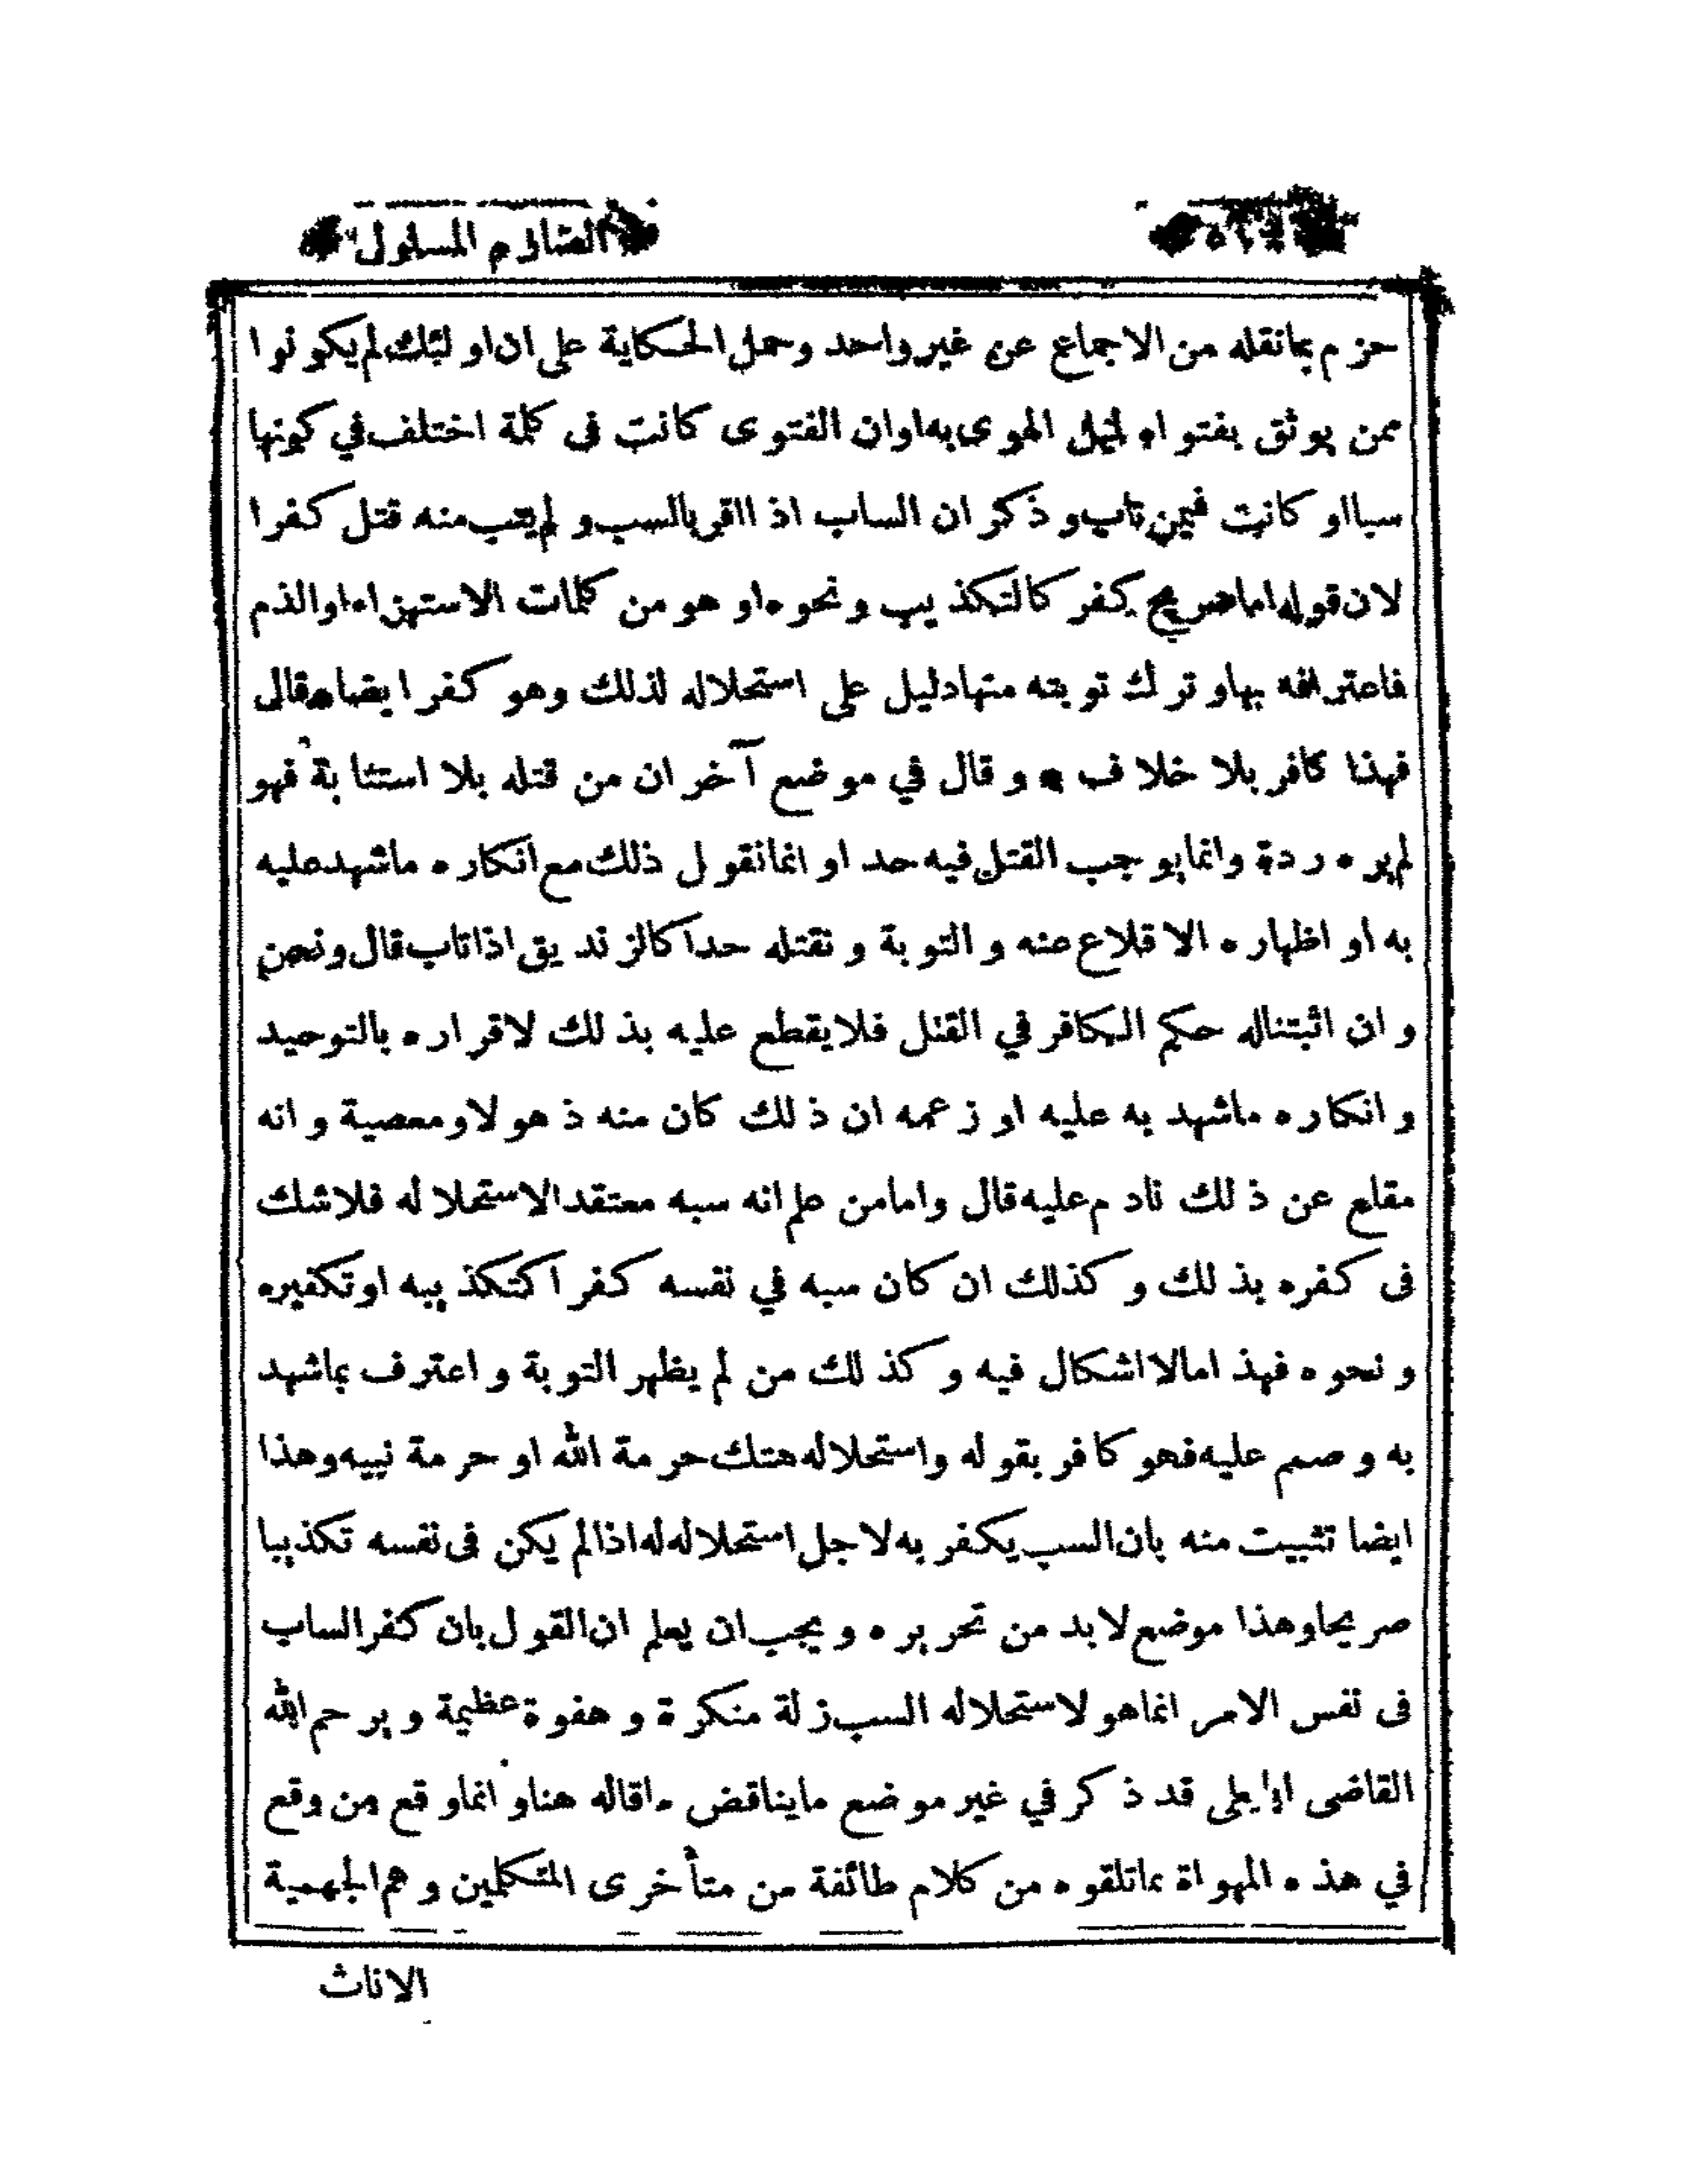 الصارم المسلول
حزم بمانقله من الاجماع عن غير واحد وحمل الحكاية على ان اولئك لم يكونوا
ممن يوثق بفتواه لميل الهوى به او ان الفتوى كانت فى كلمة اختلف في كونها
سبا او كانت فيمن تاب و ذكر ان الساب اذا اقر بالسب و لم يتب منه قتل كفرا
لان قوله اما صريح كفر كالتكذيب و نحوه او هو من كلمات الاستهزاء او الذم
فاعترافه بها و ترك توبته منها دليل على استحلاله لذلك وهو كفر ايضا ه قال
فهذا كافر بلا خلاف * و قال في موضع آخر ان من قتله بلا استتابة فهو
لم يره ردة وانما يوجب القتل فيه حد او انما نقول ذلك مع انكاره ما شهد عليه
به او اظهاره الاقلاع عنه و التوبة و نقتله حدا كالزنديق اذا تاب قال و نحن
و ان اثبتنا له حكم الكافر في القتل فلا يقطع عليه بذلك لاقراره بالتوحيد
و انكاره ما شهد به عليه او زعمه ان ذلك كان منه ذهولا و معصية و انه
مقلع عن ذلك نادم عليه قال واما من علم انه سبه معتقدا لاستحلاله فلا شك
فى كفره بذلك و كذلك ان كان سبه في نفسه كفرا كتكذيبه او تكفيره
و نحوه فهذا مما لا اشكال فيه و كذلك من لم يظهر التوبة و اعترف بما شهد
به و صمم عليه فهو كافر بقوله واستحلاله هتك حرمة الله او حرمة نبيه وهذا
ايضا تثبيت منه بان السب يكفر به لاجل استحلاله له اذا لم يكن فى نفسه تكذيبا
صريحا وهذا موضع لابد من تحريره و يجب ان يعلم ان القول بان كفر الساب
فى نفس الامر انما هو لاستحلاله السب زلة منكرة و هفوة عظيمة و يرحم الله
القاضى ابا يعلى قد ذكر في غير موضع ما يناقض ما قاله هنا و انما وقع من وقع
في هذه المهواة بما تلقوه من كلام طائفة من متأخرى المتكلمين و هم الجهمية
الاناث